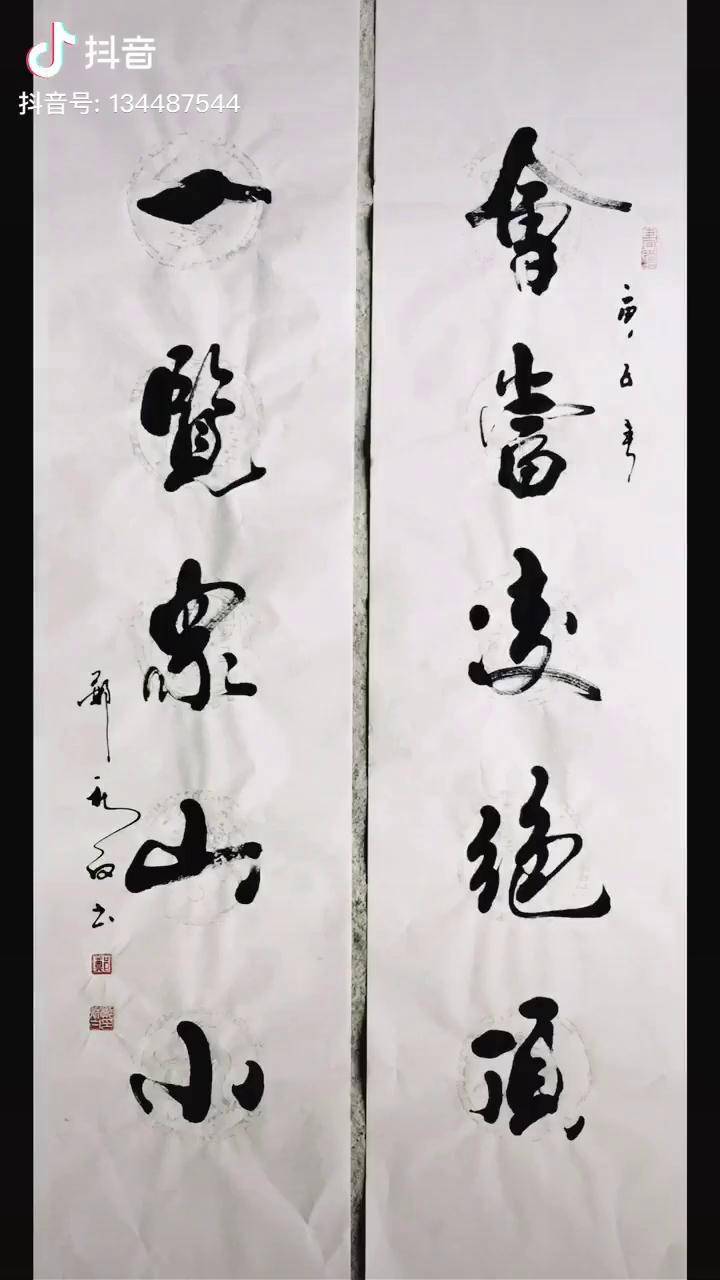 抖音
抖音号: 134487544
庚子春
會當凌絶頂
一覽衆山小
鄭
书